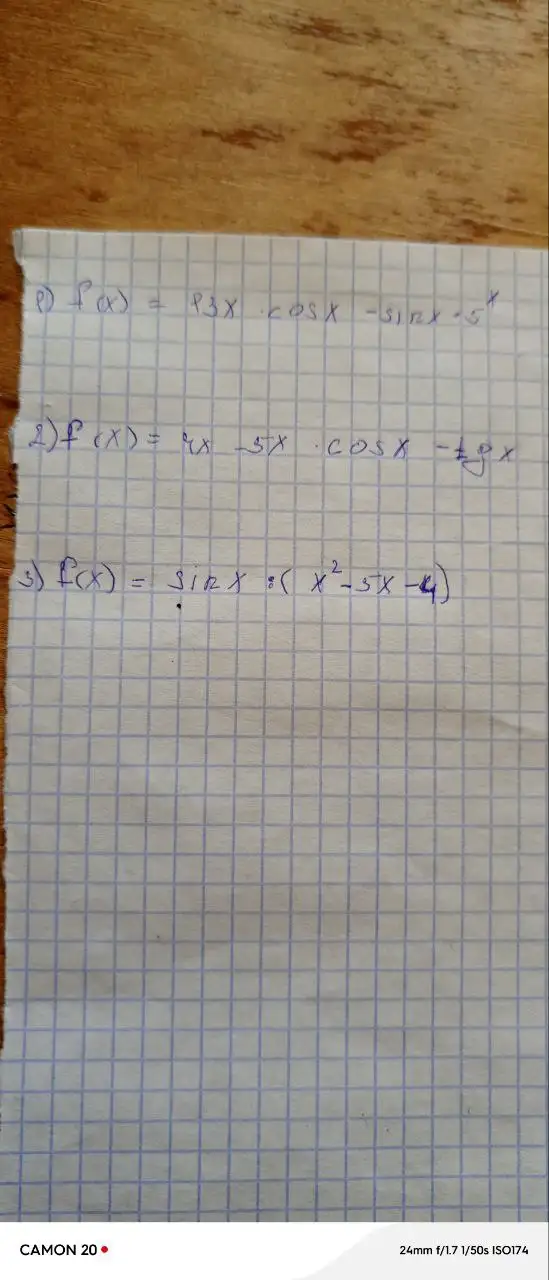 1) f(x) = 13x · cosx - sinx · 5^x
2) f(x) = 4x - 5x · cosx - tgx
3) f(x) = sinx : (x² - 5x - 4)
CAMON 20
24mm f/1.7 1/50s ISO174